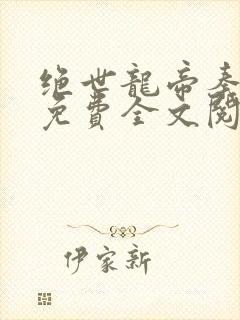 绝世龍帝
免費全文閱
伊家新